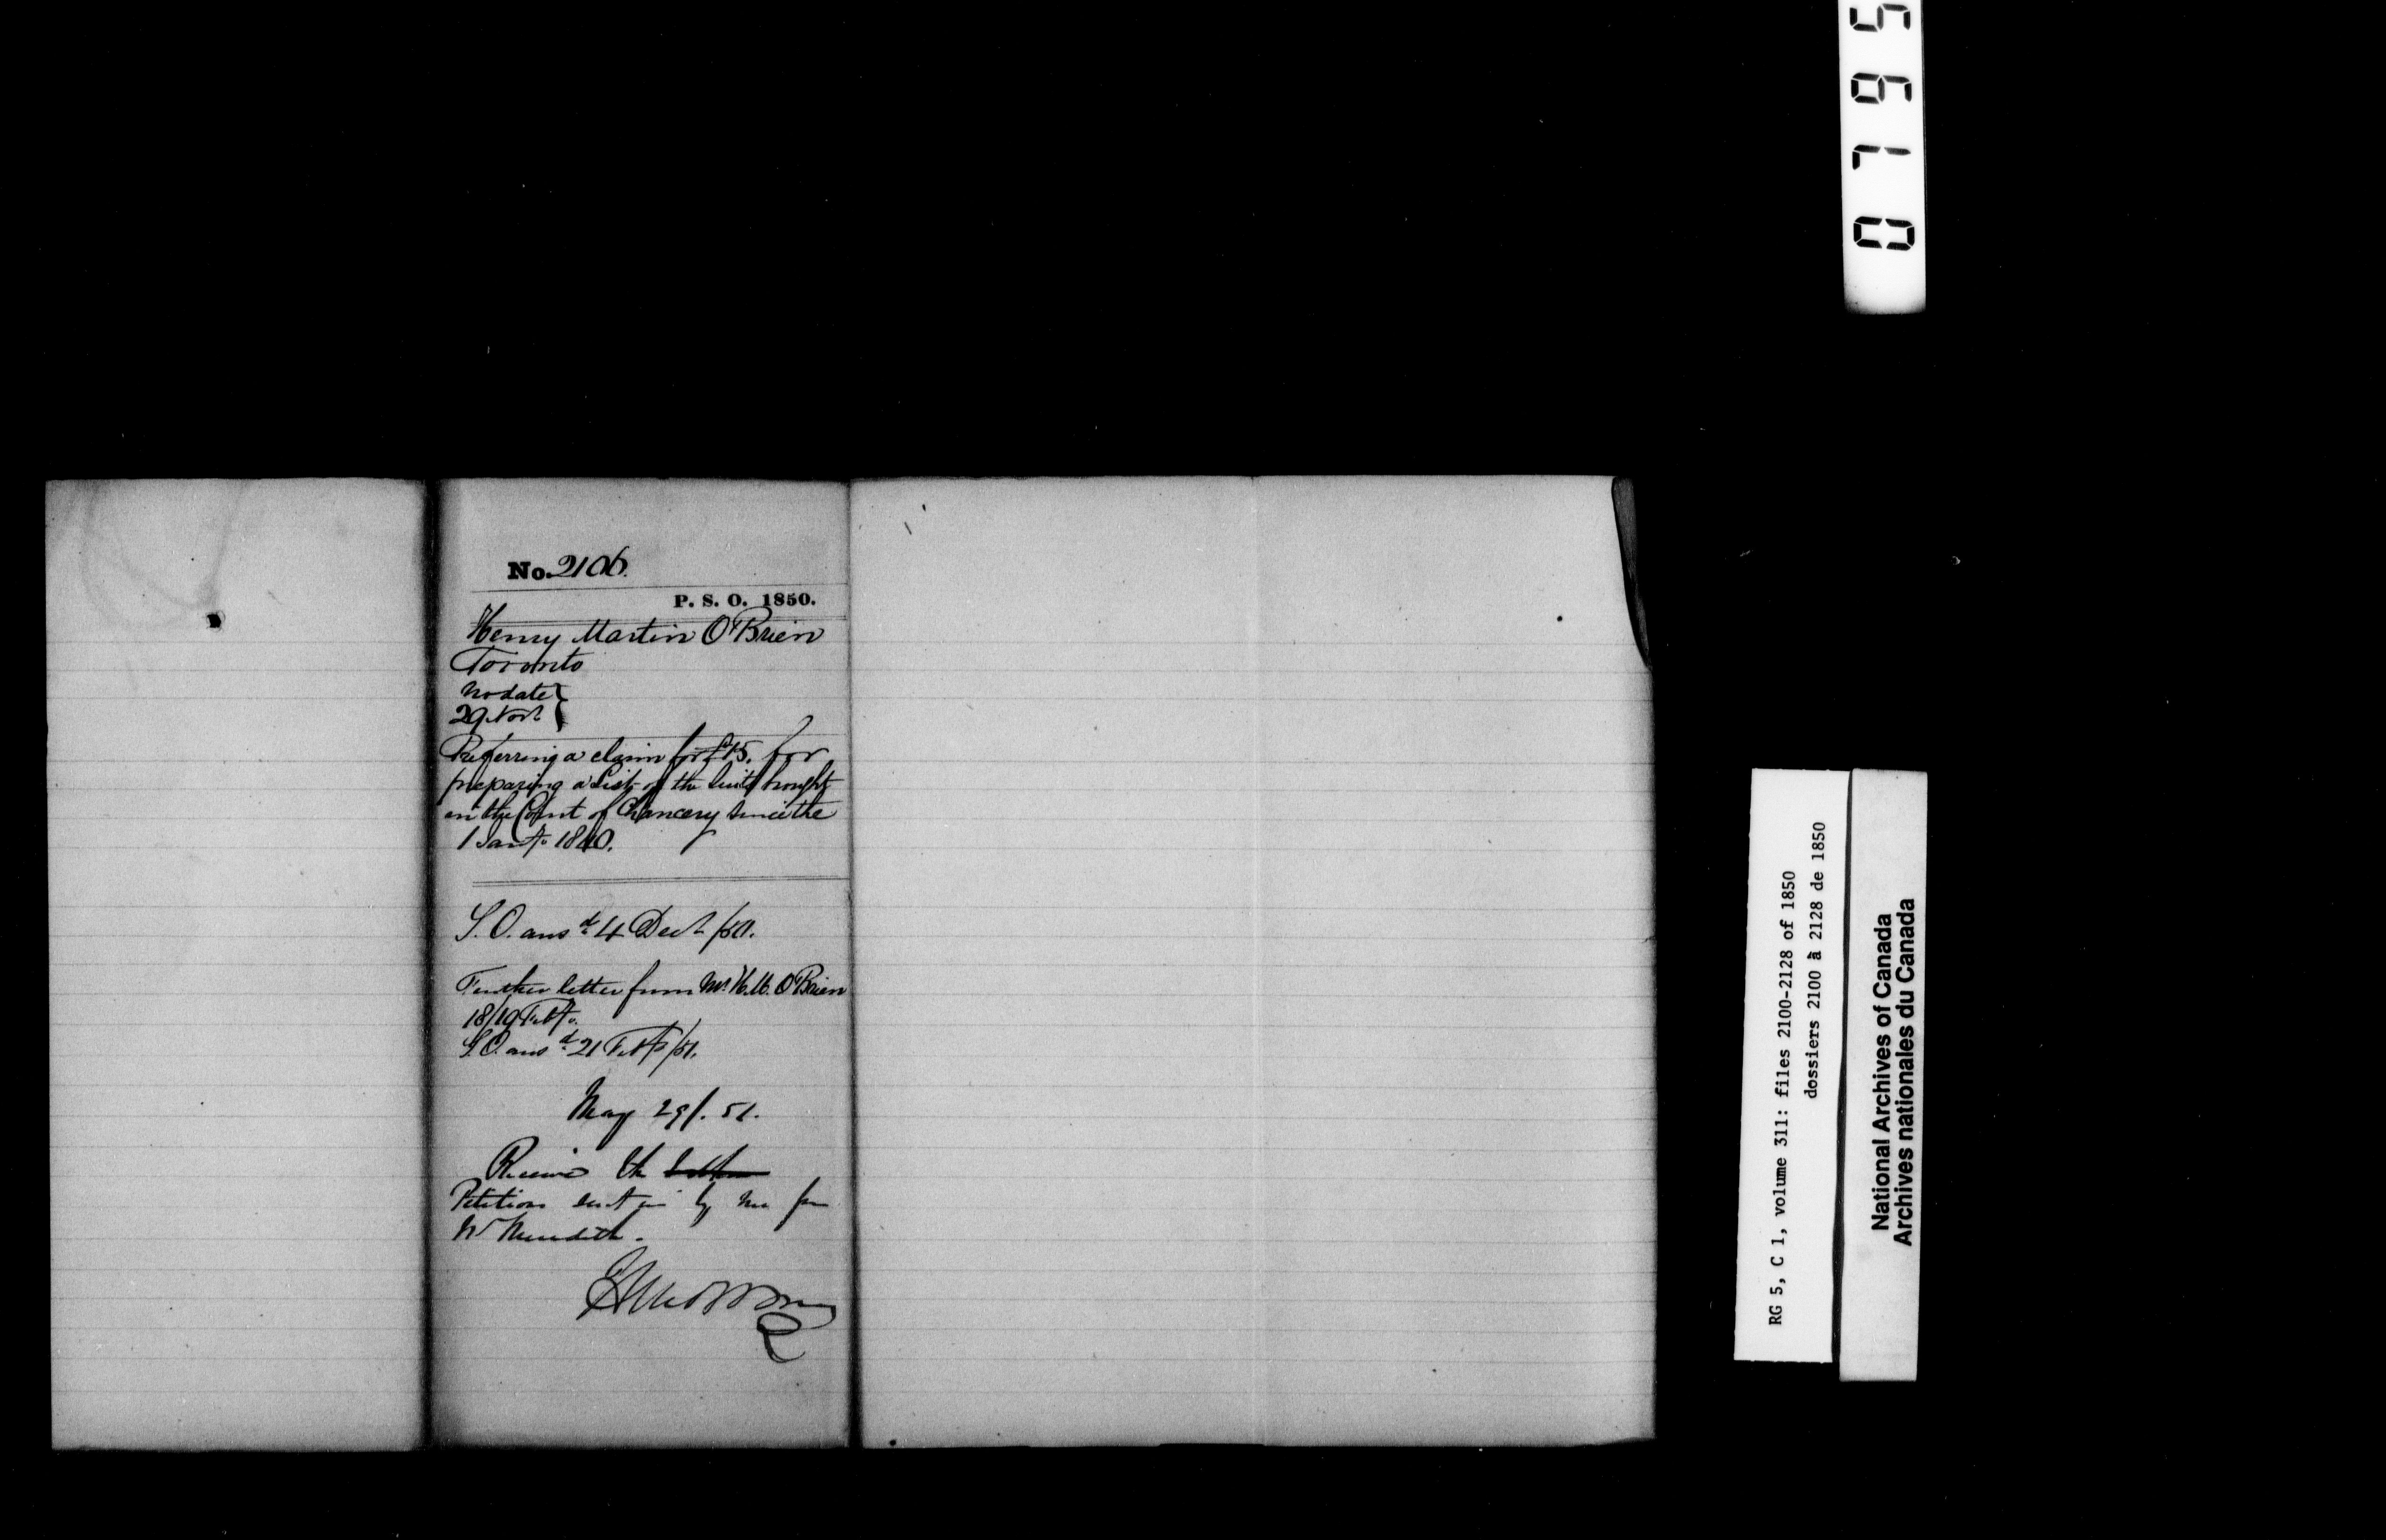 No. 2106.
P. S. O. 1850.
Henry Martin O'Brien
Toronto
No date }
29 Novr }
Preferring a claim for £15. for
preparing a List of the Suits brought
in the Court of Chancery since the
1 Jany. 1840.
S. O. ansd. 4 Decr /50.
Further letter from Mr. H. M. O'Brien
18/19 Feby.
S. O. ansd. 21 Feby /51.
May 29/. 51.
Received the letter
Petition sent in by me from
Mr Meredith.
HMO'Brien
RG 5, C 1, volume 311: files 2100-2128 of 1850
dossiers 2100 à 2128 de 1850
National Archives of Canada
Archives nationales du Canada
0 1 9 5